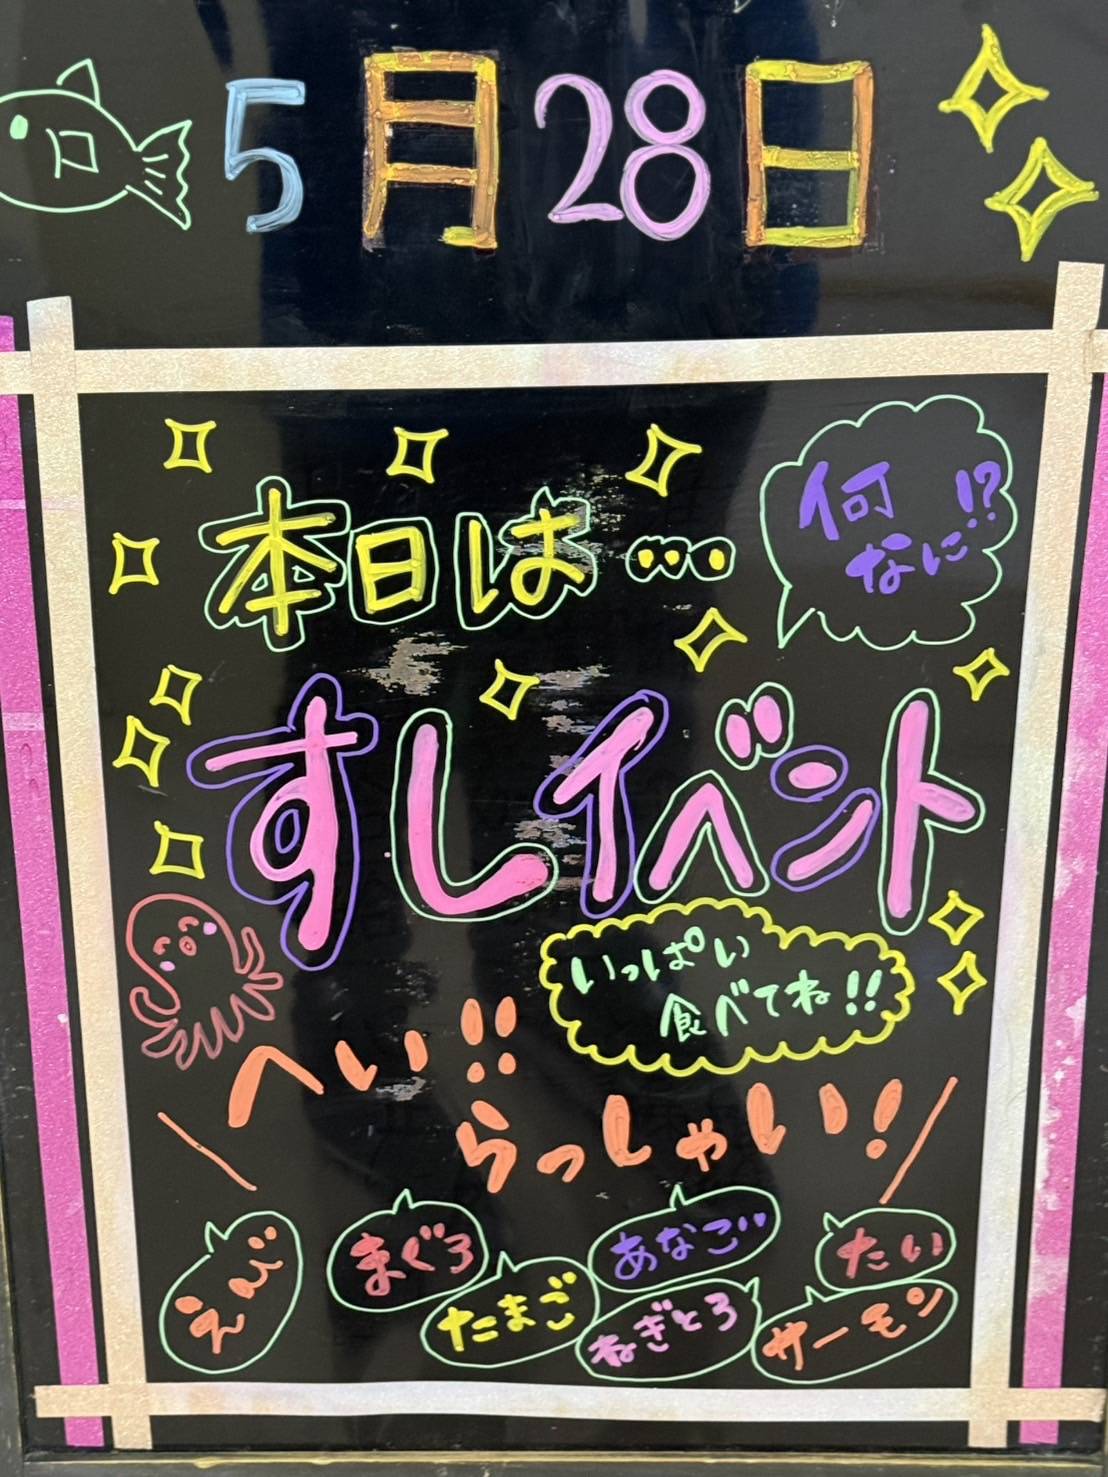 5月28日
本日は…
何なに!?
すしイベント
いっぱい
食べてね!!
へい!!
らっしゃい!
えび
まぐろ
たまご
あなご
ねぎとろ
たい
サーモン